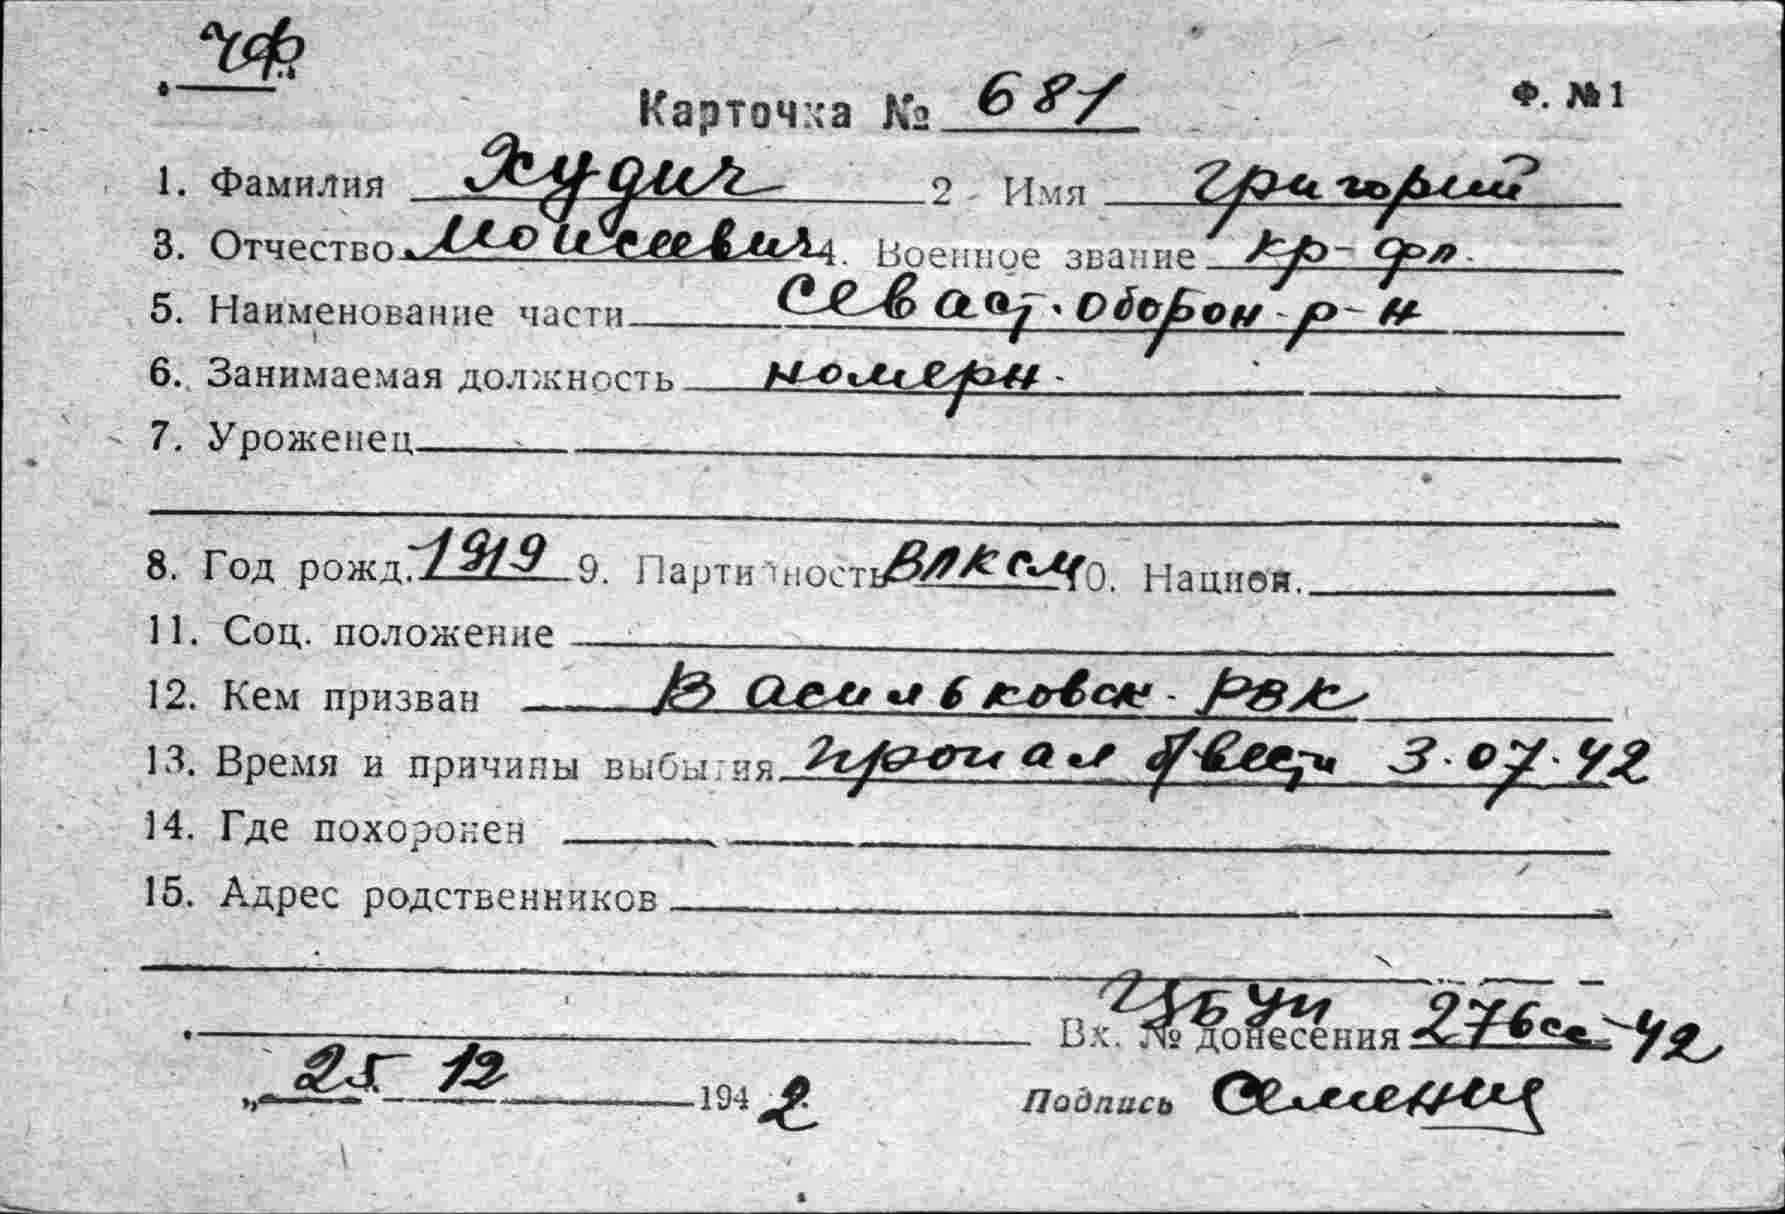 ЧФ
Карточка № 681 Ф. №1
1. Фамилия Худич 2 Имя Григорий
3. Отчество Моисеевич 4. Военное звание кр-фл.
5. Наименование части Севаст. оборон. р-н
6. Занимаемая должность номерн.
7. Уроженец
8. Год рожд. 1919 9. Партийность ВЛКСМ 10. Национ.
11. Соц. положение
12. Кем призван Васильковск. РВК
13. Время и причины выбытия пропал б/вести 3.07.42
14. Где похоронен
15. Адрес родственников
ЦБУП
Вх. № донесения 276сс-42
„25. 12 1942 Подпись